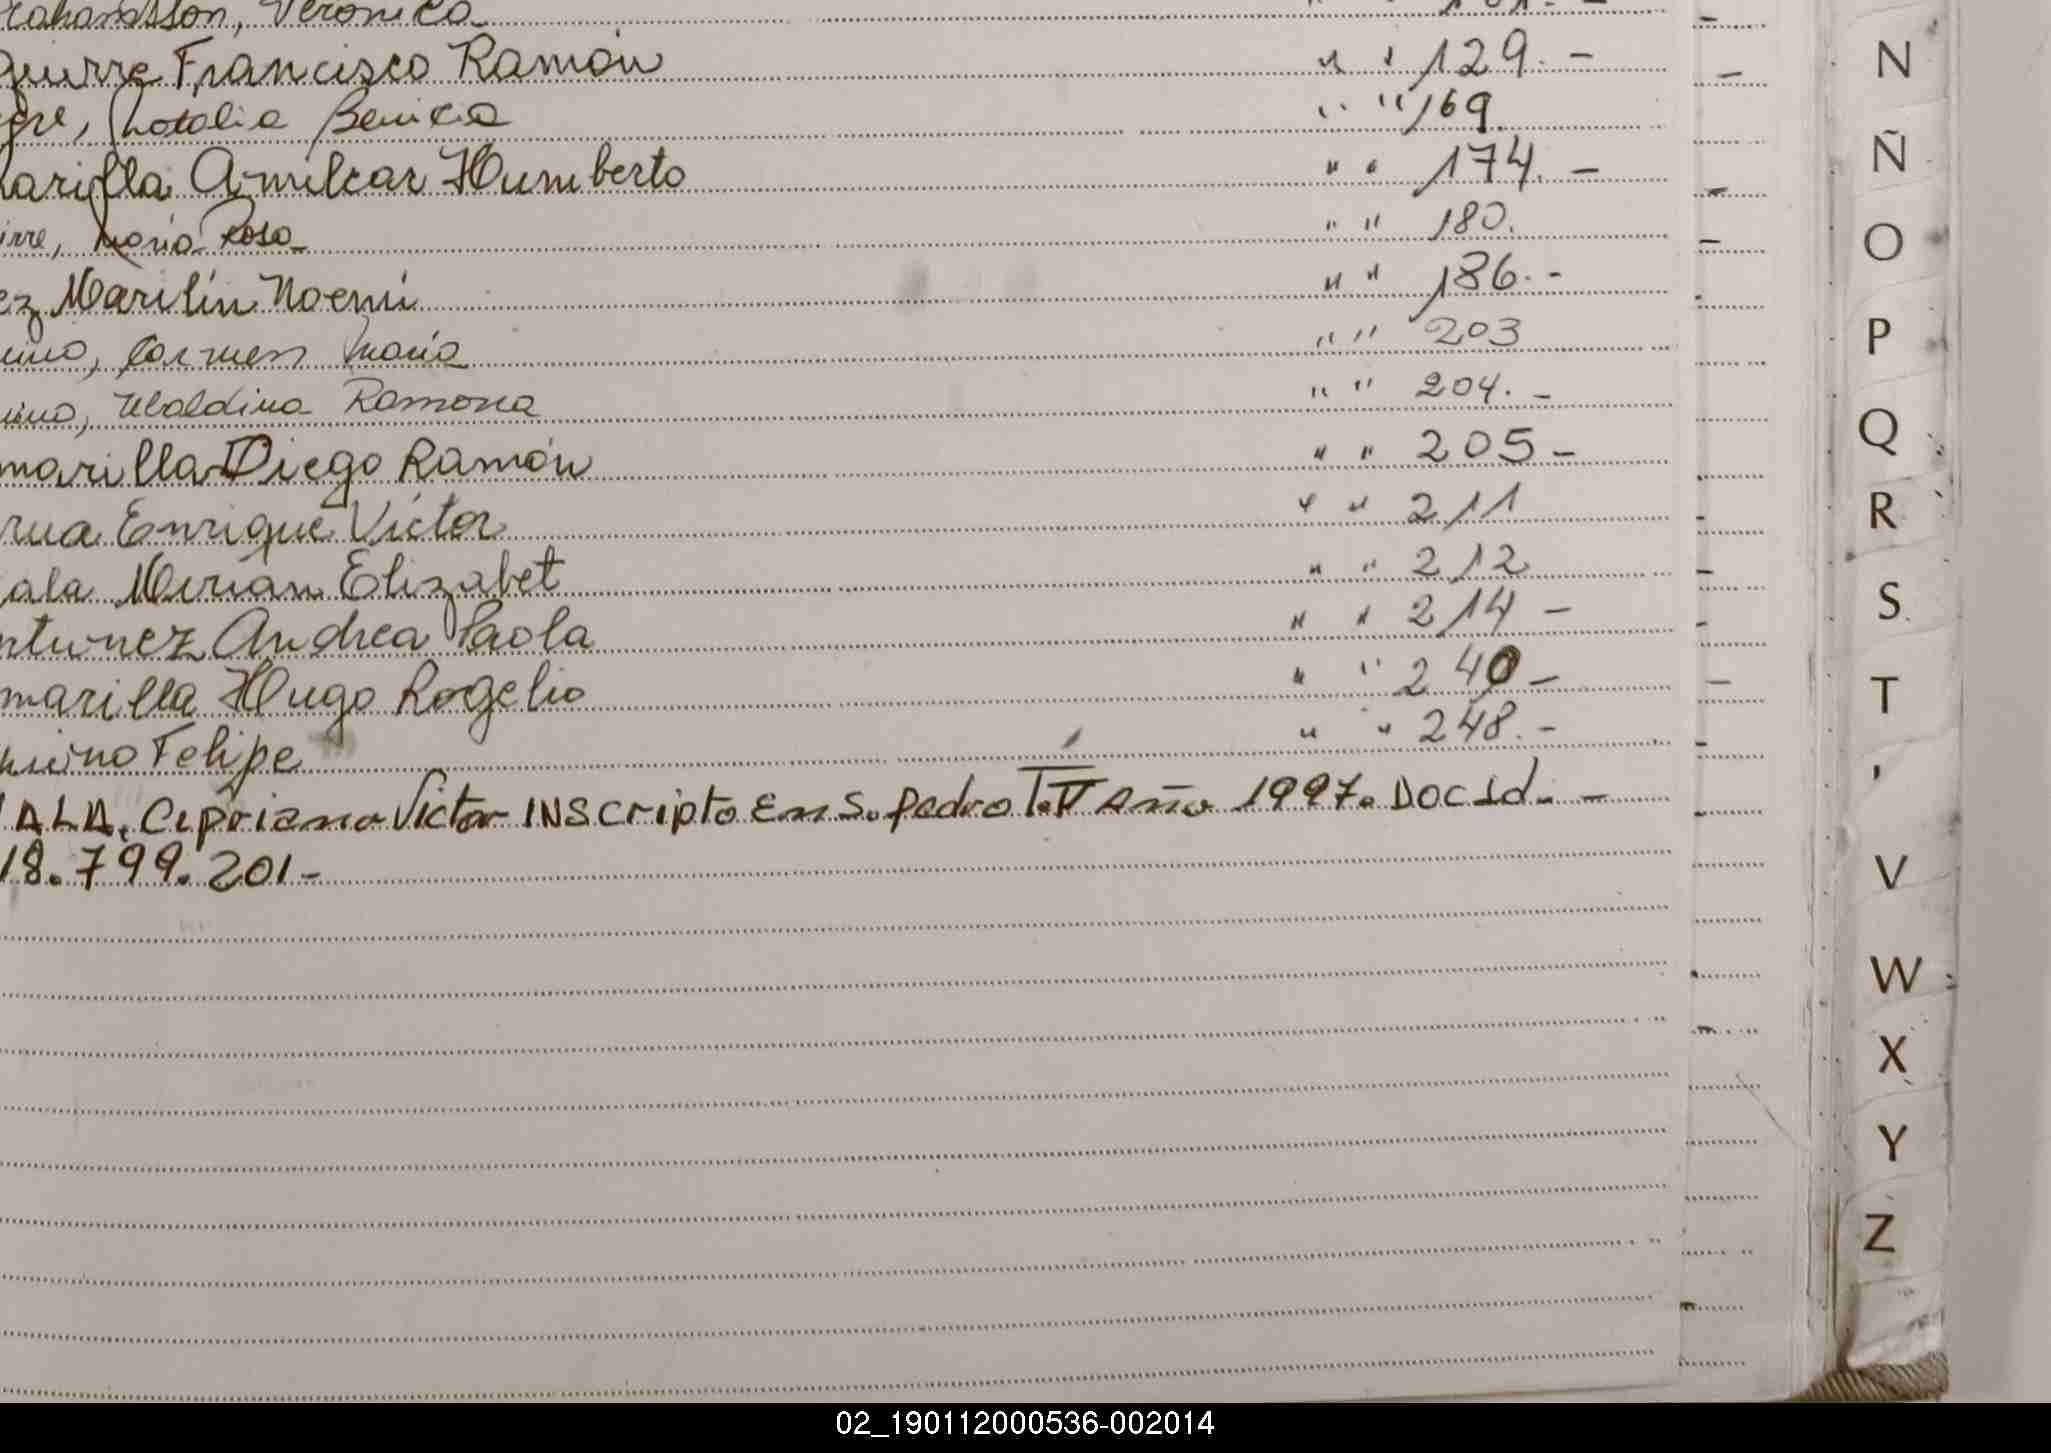 Verónica
Francisco Ramón " " 129.-
Natalia Benicia " " 169.
Amilcar Humberto " " 174.-
María Rosa " " 180.
Marilín Noemí " " 186.-
Carmen María " " 203
Ramona " " 204.-
marilla Diego Ramón " " 205-
rua Enrique Víctor " " 211
ala Mirian Elizabet " " 212
ntunez Andrea Paola " " 214-
marilla Hugo Rogelio " " 240-
Felipe " " 248.-
ALA, Cipriano Victor INScripto En S. pedro T. V Año 1997. Doc Id. -
18.799.201-
N
Ñ
O
P
Q
R
S
T
V
W
X
Y
Z
02_190112000536-002014